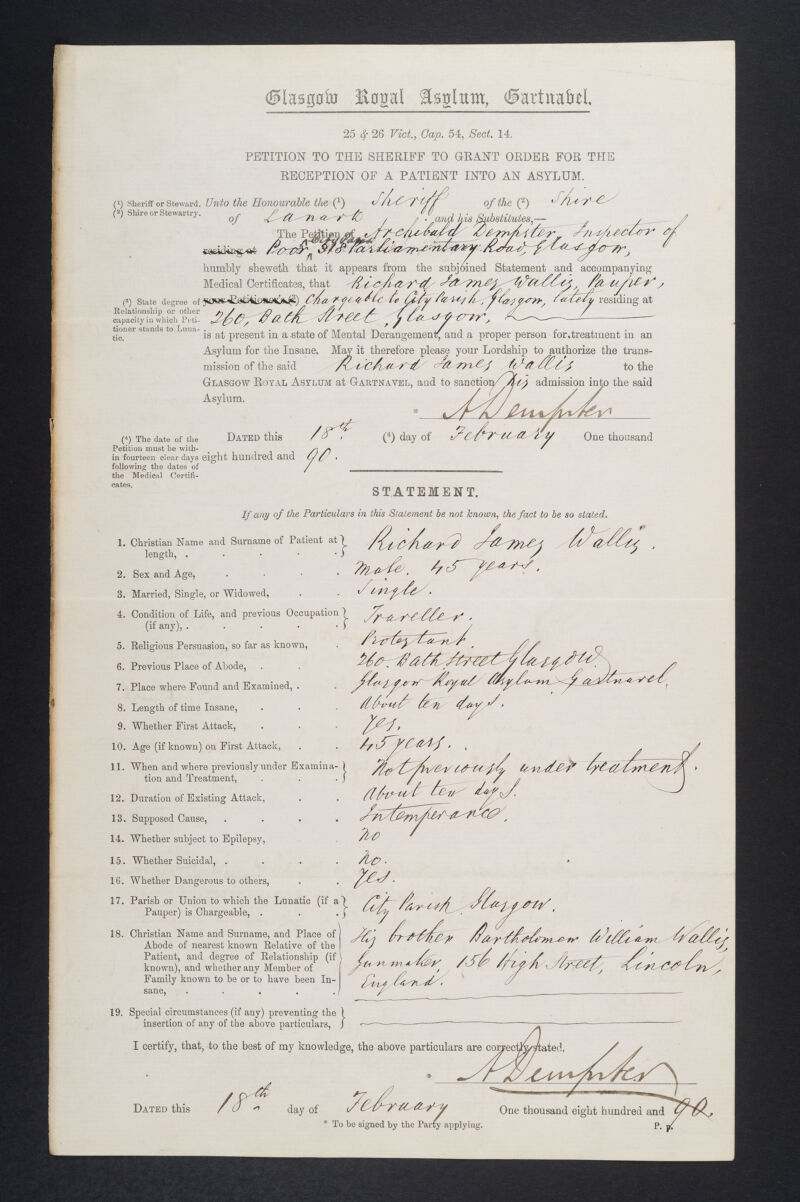 Glasgow Royal Asylum, Gartnavel.
25 & 26 Vict., Cap. 54, Sect. 14.
PETITION TO THE SHERIFF TO GRANT ORDER FOR THE
RECEPTION OF A PATIENT INTO AN ASYLUM.
(1) Sheriff or Steward.
(2) Shire or Stewartry.
Unto the Honourable the (1) Sheriff of the (2) Shire
of Lanark and his Substitutes,—
The Petition of Archibald Dempster, Inspector of
residing at Poor, City Parish 318 Parliamentary Road, Glasgow,
humbly sheweth that it appears from the subjoined Statement and accompanying
Medical Certificates, that Richard James Wallis, Pauper,
(3) State degree of Relationship or other capacity in which Petitioner stands to Lunatic.
your Petitioner's (3) Chargeable to City Parish, Glasgow, lately residing at
260, Bath Street, Glasgow,
is at present in a state of Mental Derangement, and a proper person for treatment in an
Asylum for the Insane. May it therefore please your Lordship to authorize the trans-
mission of the said Richard James Wallis to the
GLASGOW ROYAL ASYLUM AT GARTNAVEL, and to sanction his admission into the said
Asylum.
* A Dempster
(4) The date of the Petition must be within fourteen clear days following the dates of the Medical Certificates.
DATED this 18th. (4) day of February One thousand
eight hundred and 90.
STATEMENT.
If any of the Particulars in this Statement be not known, the fact to be so stated.
1. Christian Name and Surname of Patient at length, . Richard James Wallis.
2. Sex and Age, Male. 45 years.
3. Married, Single, or Widowed, Single.
4. Condition of Life, and previous Occupation (if any), . Traveller.
5. Religious Persuasion, so far as known, Protestant
6. Previous Place of Abode, 260. Bath Street Glasgow
7. Place where Found and Examined, . Glasgow Royal Asylum Gartnavel.
8. Length of time Insane, About ten days.
9. Whether First Attack, Yes.
10. Age (if known) on First Attack, 45 years.
11. When and where previously under Examina-
tion and Treatment, Not previously under treatment.
12. Duration of Existing Attack, About ten days.
13. Supposed Cause, Intemperance.
14. Whether subject to Epilepsy, No
15. Whether Suicidal, . No.
16. Whether Dangerous to others, Yes.
17. Parish or Union to which the Lunatic (if a
Pauper) is Chargeable, . City Parish Glasgow.
18. Christian Name and Surname, and Place of
Abode of nearest known Relative of the
Patient, and degree of Relationship (if
known), and whether any Member of
Family known to be or to have been In-
sane,
His brother Bartholomew William Wallis,
Gunmaker, 156 High Street, Lincoln,
England.
19. Special circumstances (if any) preventing the
insertion of any of the above particulars,
I certify, that, to the best of my knowledge, the above particulars are correctly stated.
* A Dempster
DATED this 18th. day of February One thousand eight hundred and 90.
* To be signed by the Party applying.
P. p.